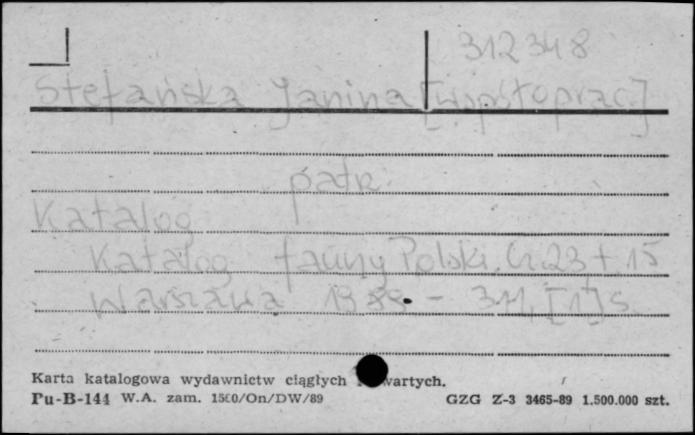 312348
Stefańska Janina [współoprac.]
patrz:
Katalog
Katalog fauny Polski. Cz. 23 t. 15
Warszawa 1989 - 311, [1] s.
Karta katalogowa wydawnictw ciągłych i zwartych.
Pu-B-144 W.A. zam. 1500/On/DW/89 GZG Z-3 3465-89 1.500.000 szt.